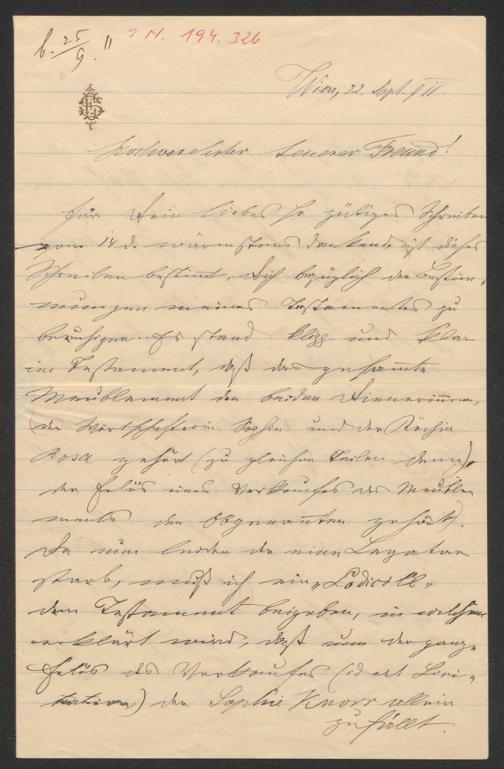 b. 25/9. 11
I N. 194.326
Wien, 22. Sept. 911.
Hochverehrter teuerer Freund!
Für Dein liebes so gütiges Schreiben
vom 14. d. wärmstens dankend ist dieses
Schreiben bestimt, Dich bezüglich der Bestim-
mungen meines Testamentes zu
beruhigen. Es stand klipp und klar
im Testament, daß das gesamte
Meublement den beiden Dienerinnen,
der Wirtschafterin Sophie und der Köchin
Rosa gehört (zu gleichen Teilen denn),
der Erlös eines Verkaufes des Meuble-
ments den Obgenannten gehört).
Da nun leider die eine Legatar
starb, muß ich ein „Codicill„
dem Testament beigeben, in welchem
erklärt wird, daß nun der ganze
Erlös des Verkaufes (id est Lici-
tation) der Sophie Knorr allein
zufällt.